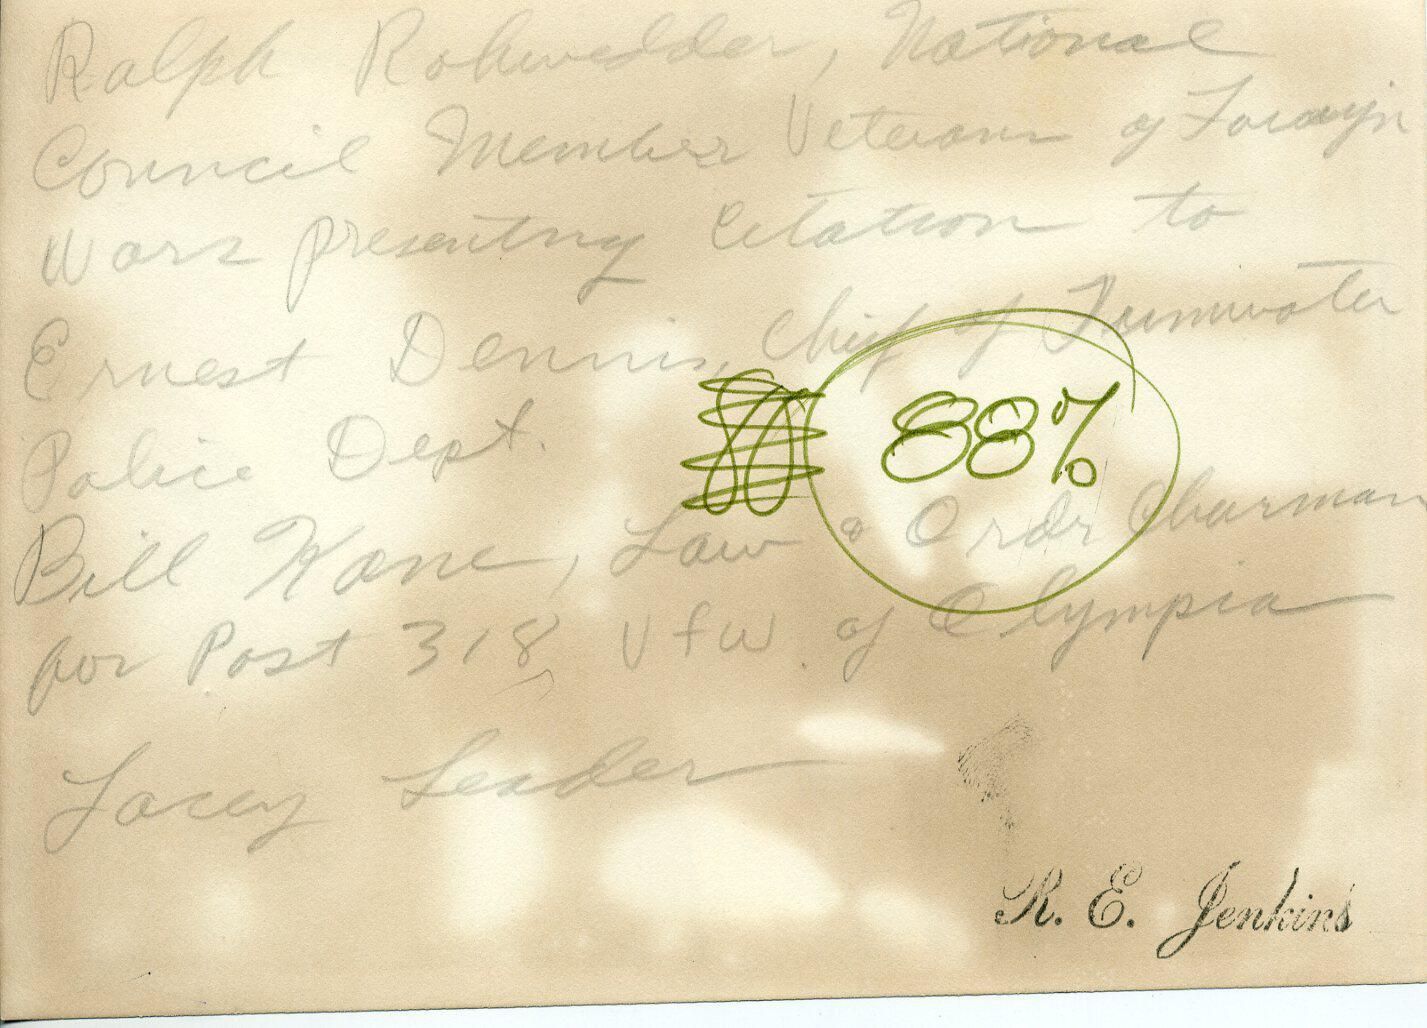 Ralph Rohwedder, National
Council Member Veterans of Foraign
Wars presentng Citation to
Ernest Dennis, Chief of Tumwater
Police Dept.
88%
Bill Kane, Law & Ordr Charman
for Post 318 VfW of Olympia
Lacey Leader
R. E. Jenkins